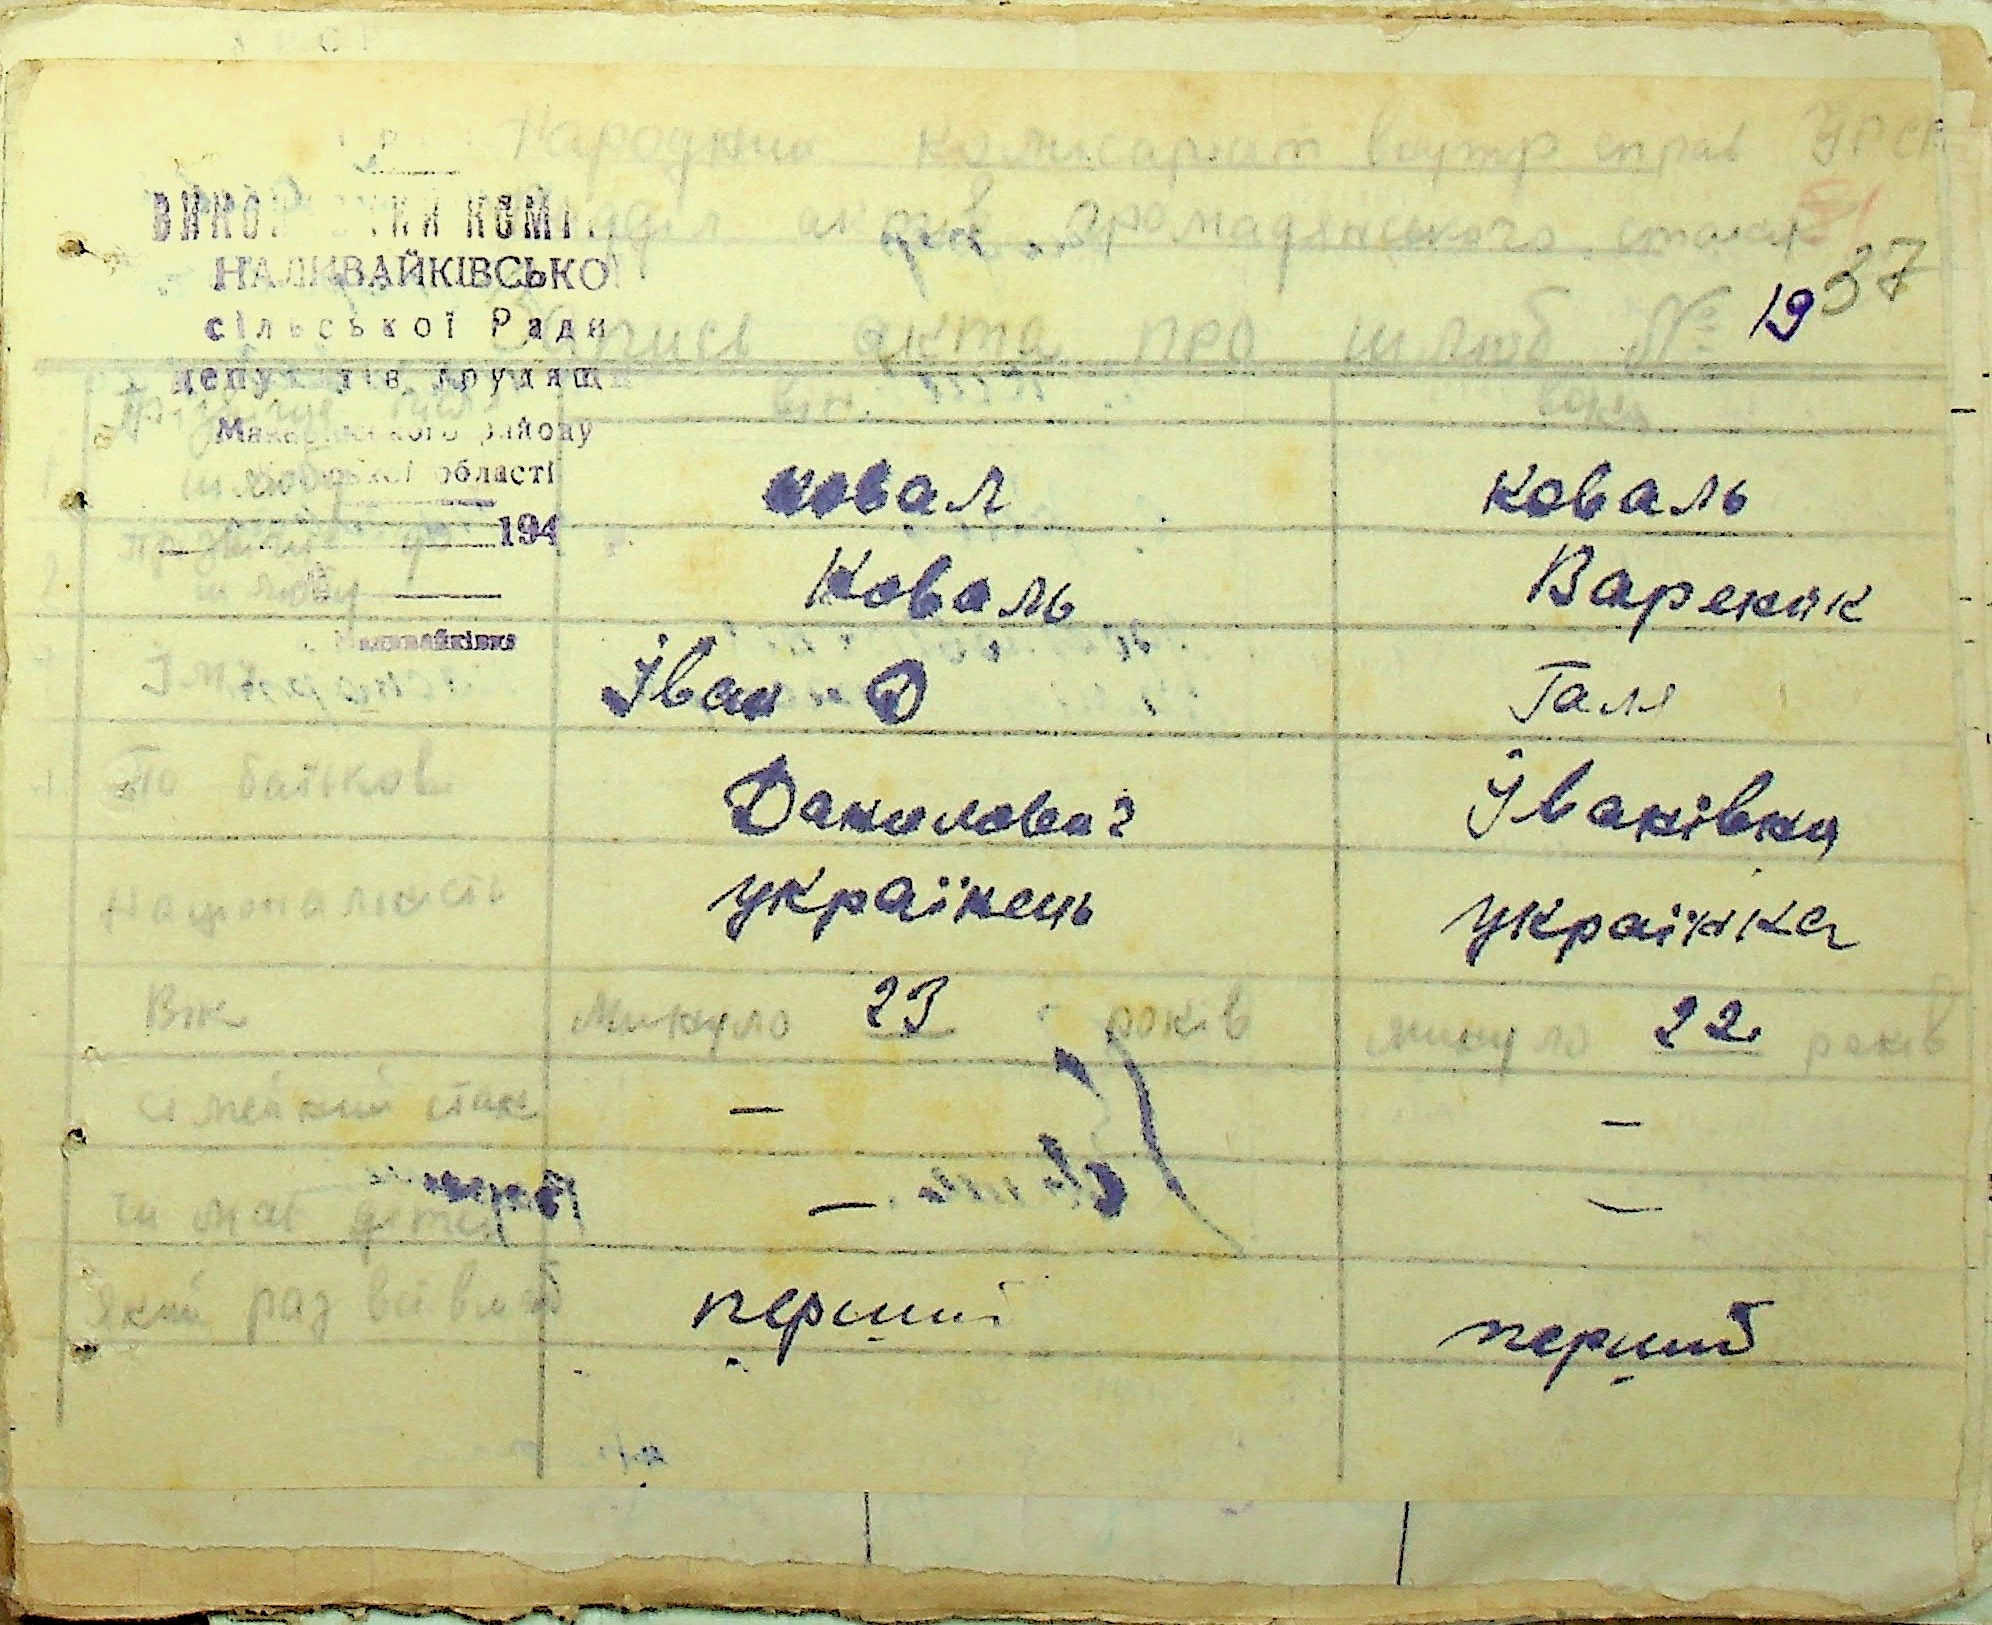 Народний комісаріат внутр справ УРСР
відділ актів громадянського стану
37
Запись акта про шлюб № 19
ВИКОНАВЧИЙ КОМІТЕТ
НАЛИВАЙКІВСЬКОЇ
сільської Ради
депутатів трудящих
Макарівського району
Київської області
194
Наливайківка
Прізвище після шлюбу
він
вона
1 ковал коваль
2 Прізвище до шлюбу Коваль Вареник
Імя Іван Д Галя
4 По батькові Данилович Іванівна
Національність українець українка
Вік Минуло 23 років минуло 22 років
сімейний стан — —
чи має дітей — —
який раз вст в шлюб перший перший